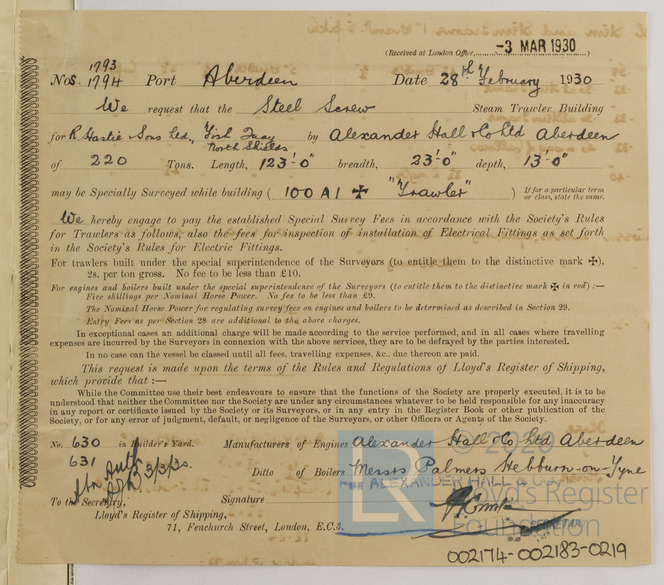 (Received at London Office, -3 MAR 1930)
1793
Nos. 1794 Port Aberdeen Date 28th February 1930
We request that the Steel Screw Steam Trawler Building
for R. Hastie & Sons Ltd., Fish Quay North Shields by Alexander Hall & Co Ltd Aberdeen
of 220 Tons. Length, 123'-0" breadth, 23'-0" depth, 13'-0"
may be Specially Surveyed while building ( 100 A1 ✠ "Trawler" ) If for a particular term or class, state the same.
We hereby engage to pay the established Special Survey Fees in accordance with the Society's Rules
for Trawlers as follows, also the fees for inspection of installation of Electrical Fittings as set forth
in the Society's Rules for Electric Fittings.
For trawlers built under the special superintendence of the Surveyors (to entitle them to the distinctive mark ✠),
2s. per ton gross. No fee to be less than £10.
For engines and boilers built under the special superintendence of the Surveyors (to entitle them to the distinctive mark ✠ in red) :—
Five shillings per Nominal Horse Power. No fee to be less than £9.
The Nominal Horse Power for regulating survey fees on engines and boilers to be determined as described in Section 29.
Entry Fees as per Section 28 are additional to the above charges.
In exceptional cases an additional charge will be made according to the service performed, and in all cases where travelling
expenses are incurred by the Surveyors in connexion with the above services, they are to be defrayed by the parties interested.
In no case can the vessel be classed until all fees, travelling expenses, &c., due thereon are paid.
This request is made upon the terms of the Rules and Regulations of Lloyd's Register of Shipping,
which provide that :—
While the Committee use their best endeavours to ensure that the functions of the Society are properly executed, it is to be
understood that neither the Committee nor the Society are under any circumstances whatever to be held responsible for any inaccuracy
in any report or certificate issued by the Society or its Surveyors, or in any entry in the Register Book or other publication of the
Society, or for any error of judgment, default, or negligence of the Surveyors, or other Officers or Agents of the Society.
No. 630 in Builder's Yard. Manufacturers of Engines Alexander Hall & Co Ltd Aberdeen
631
3/3/30.
Ditto of Boilers Messrs Palmers Hebburn-on-Tyne
FOR ALEXANDER HALL & CO
To the Secretary, Signature
SECRETARY
Lloyd's Register of Shipping,
71, Fenchurch Street, London, E.C.3.
© 2020
LR Lloyd's Register
Foundation
002174-002183-0219